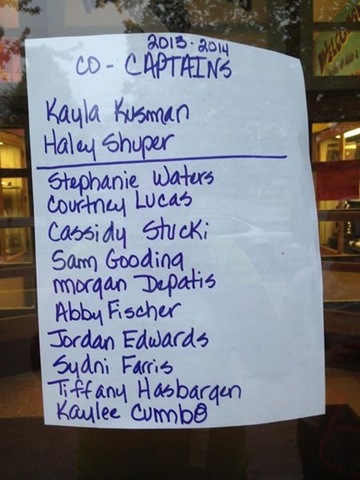 2013-2014
CO-CAPTAINS
Kayla Kusman
Haley Shuper
Stephanie Waters
Courtney Lucas
Cassidy Stucki
Sam Gooding
Morgan Depatis
Abby Fischer
Jordan Edwards
Sydni Farris
Tiffany Hasbargen
Kaylee Cumbo